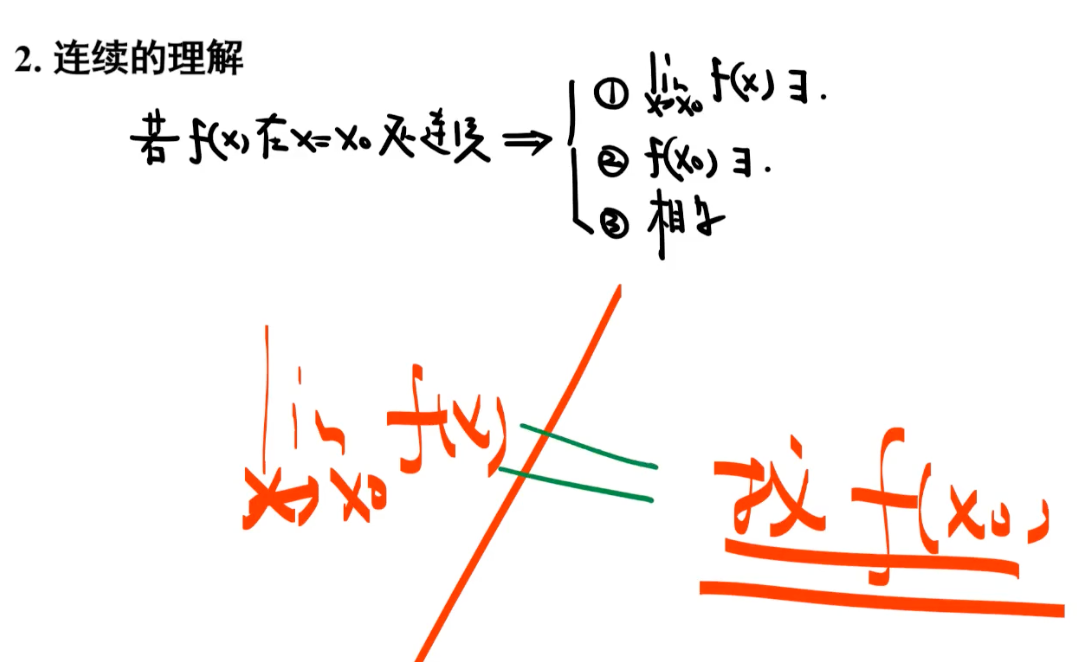 2. 连续的理解
若 f(x) 在 x=x₀ 处连续 ⇒
① lim x→x₀ f(x) ∃.
② f(x₀) ∃.
③ 相等
lim x→x₀ f(x) = f(x₀)